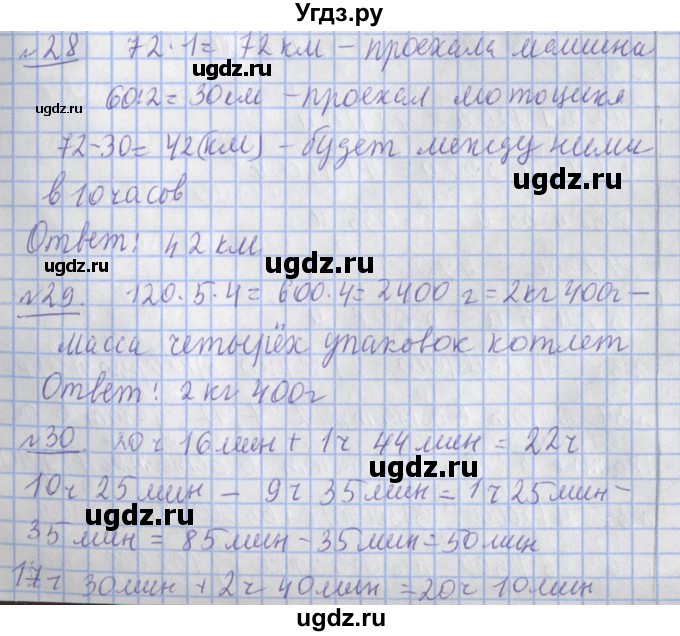 Угдз.ру
№28 72·1= 72 км – проехала машина
gdz.ru
gdz.ru
60:2= 30 км – проехал мотоцикл
gdz.ru
72-30= 42(км) – будет между ними
ugdz.ru
в 10 часов
Ответ: 42 км.
ugdz.ru
№29. 120·5·4= 600·4= 2400 г = 2кг 400г –
масса четырёх упаковок котлет
Ответ: 2 кг 400г
ugdz.ru
№30. 20ч 16мин + 1ч 44 мин = 22ч
ugdz.ru
10ч 25мин – 9ч 35мин = 1ч 25мин –
ugdz.ru
35 мин = 85мин – 35мин = 50мин
17ч 30мин + 2ч 40мин = 20ч 10мин
ugdz.ru